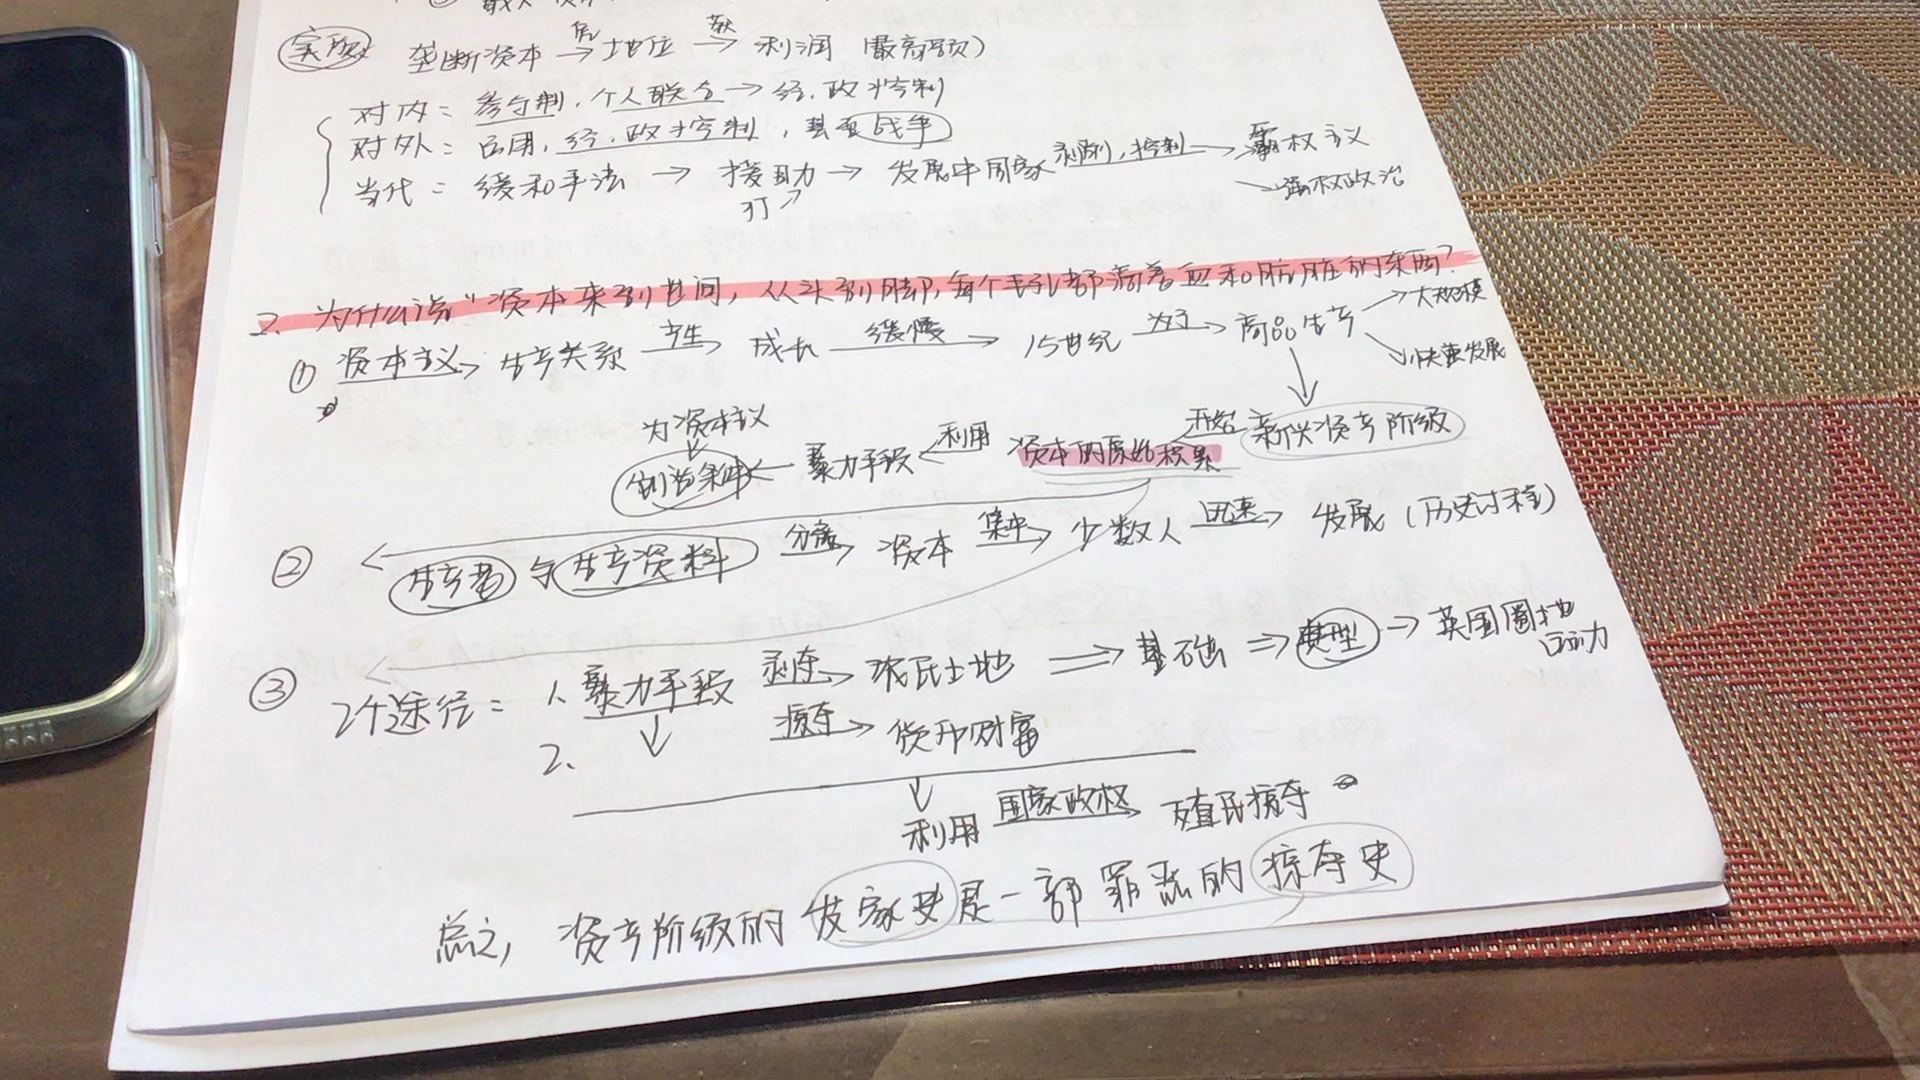 实质 垄断资本 → 地位 →获 利润（最高额）
对内：参与制，个人联合 → 经、政控制
对外：占用，经、政控制，甚至战争
当代：缓和手法 → 援助 → 发展中国家 剥削，控制 → 霸权主义
打 ↗ ↘ 强权政治
2. 为什么说"资本来到世间，从头到脚，每个毛孔都滴着血和肮脏的东西？
① 资本主义 → 生产关系 产生 → 成长 缓慢 → 15世纪 为了 → 商品生产 → 大规模
↘ 快速发展
为资本主义 创造条件 ← 暴力手段 ← 利用 资本的原始积累 ← 开始 新兴资产阶级
② 生产者与生产资料 分离 → 资本 集中 → 少数人 迅速 → 发展（历史过程）
③ 2个途径： 1、暴力手段 剥夺 → 农民土地 ⇒ 基础 ⇒ 典型 → 英国圈地运动
2、 掠夺 → 货币财富
利用 国家政权 → 殖民掠夺
总之，资产阶级的发家史是一部罪恶的掠夺史